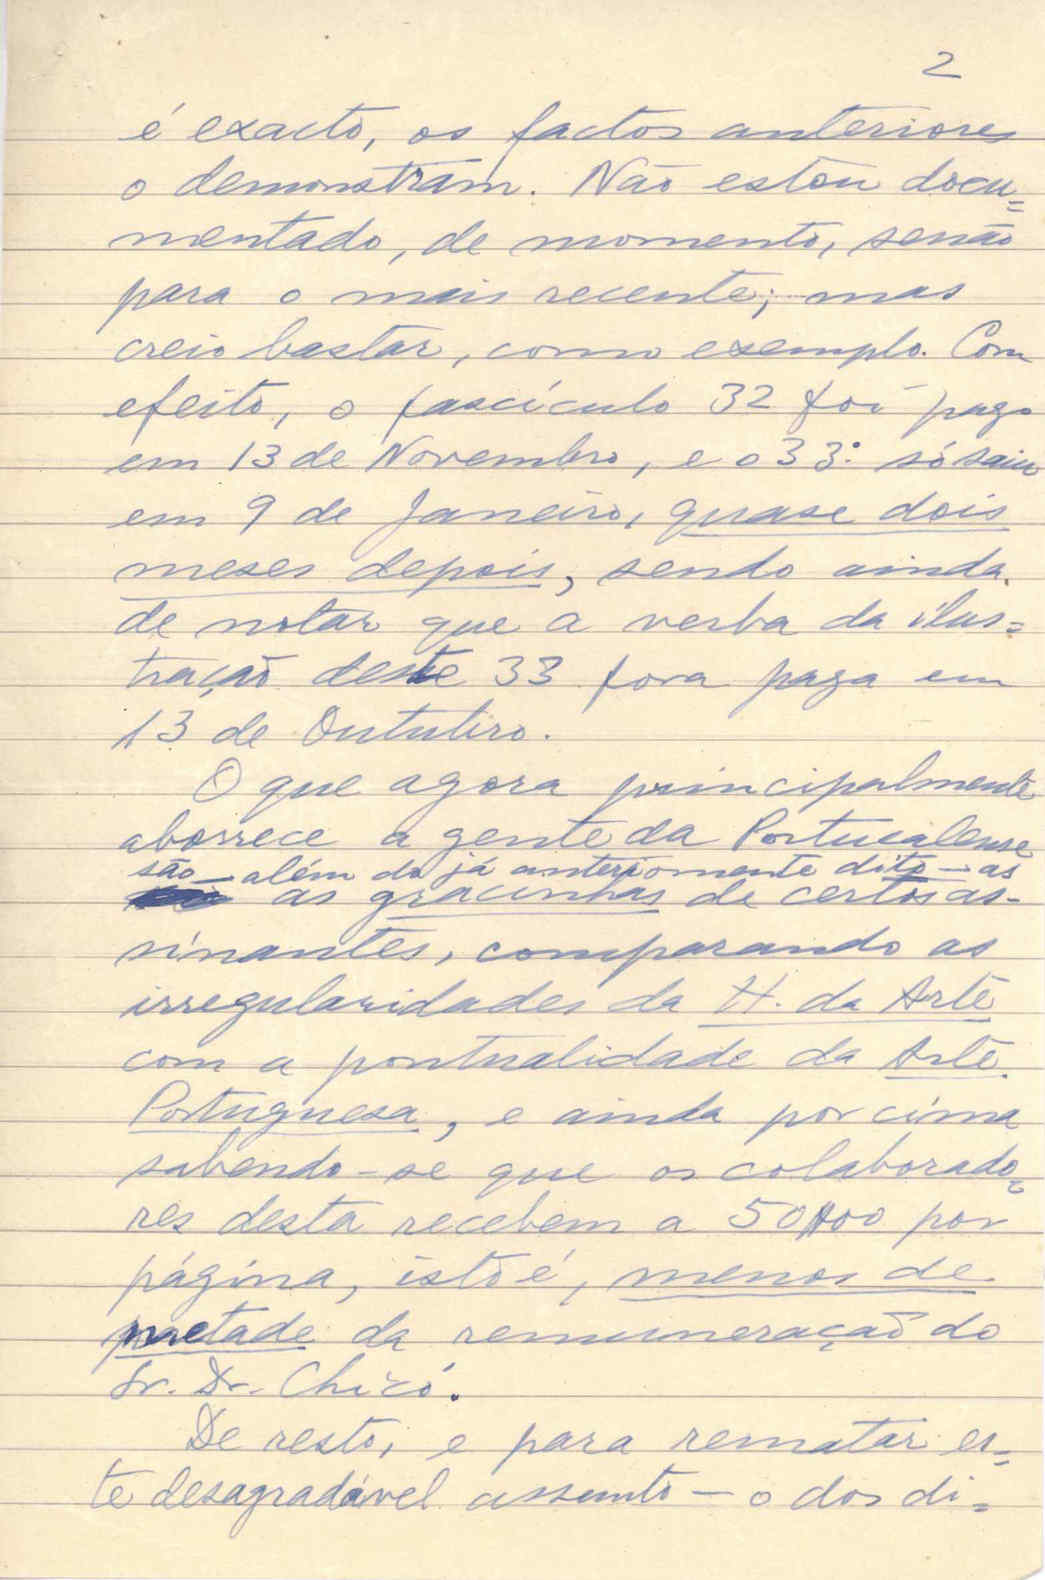 2
é exacto, os factos anteriores
o demonstram. Não estou docu=
mentado, de momento, senão
para o mais recente; mas
creio bastar, como exemplo. Com
efeito, o fascículo 32 foi pago
em 13 de Novembro, e o 33º só saiu
em 9 de Janeiro, quase dois
meses depois, sendo ainda
de notar que a verba da ilus=
tração deste 33 fora paga em
13 de Outubro.
O que agora principalmente
aborrece a gente da Portucalense
são - além do já anteriormente dito - as
as gracinhas de certos as-
sinantes, comparando as
irregularidades da H. da Arte
com a pontualidade da Arte
Portuguesa, e ainda por cima
sabendo-se que os colaborado=
res desta recebem a 50$00 por
página, isto é, menos de
metade da remuneração do
Sr. Dr. Chicó.
De resto, e para rematar es=
te desagradável assunto - o dos di=